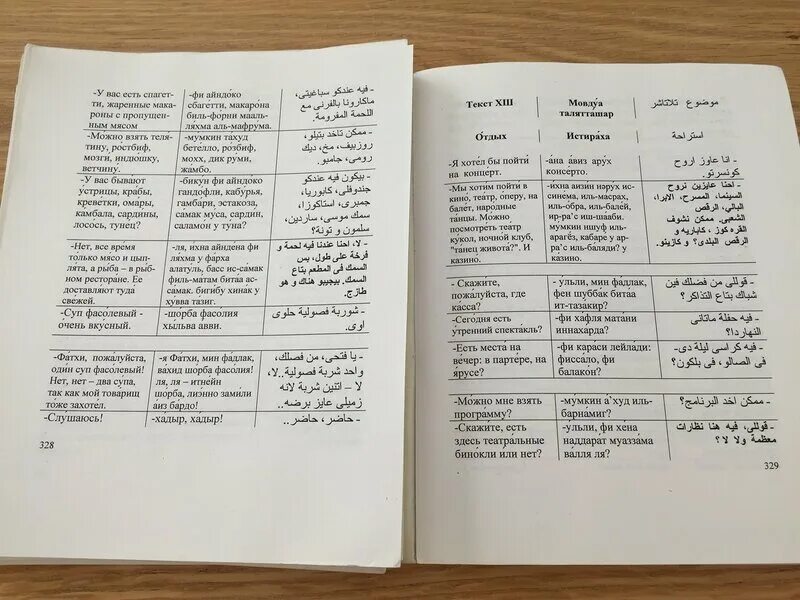 -У вас есть спагет-
ти, жаренные мака-
роны с пропущен-
ным мясом
-фи айндо́ко
сбагетти, макаро́на
биль-форни мааль-
ля́хма аль-мафрума.
- فيه عندكو سباغيتى،
ماكارونا بالفرنى مع
اللحمة المفرومة.
-Мо́жно взять теля́-
тину, ростбиф,
мозги, индюшку,
ветчину.
-му́мкин та́худ
бете́лло, ро́збиф,
мохх, дик руми,
жамбо.
- ممكن تاخد بتيلو،
روزبيف، مخ، ديك
رومى، جامبو.
-У вас бывают
у́стрицы, кра́бы,
креве́тки, ома́ры,
камбала, сардины,
лосо́сь, туне́ц?
-бику́н фи айндоко
гандофли, кабурья,
гамбари, эстако́за,
самак муса, сардин,
саламон у ту́на?
- بيكون فيه عندكو
جندوفلى، كابوريا،
جمبرى، استاكوزا،
سمك موسى، ساردين،
سلمون و تونة؟
-Нет, все вре́мя
только мя́со и цып-
ля́та, а ры́ба – в ры́б-
ном рестора́не. Ее
доставля́ют туда́
све́жей.
-ля, ихна айндена фи
ля́хма у фа́рха
алату́ль, басс ис-самак
филь-матам битаа ас-
самак. бигибу хинак у
ху́вва тазиг.
- لا، احنا عندنا فيه لحمة و
فرخة على طول، بس
السمك فى المطعم بتاع
السمك. بيجيبو هناك و هو
طازج.
-Суп фасо́левый -
очень вку́сный.
-шорба фасолия
хыльва авви.
- شوربة فصولية حلوى
اوى.
-Фа́тхи, пожа́луйста,
один суп фасо́левый!
Нет, нет – два су́па,
так как мой това́рищ
то́же захоте́л.
-я Фатхи, мин фа́длак,
вахид шо́рба фасолия!
ля, ля – итне́йн
шорба, лиэнно зами́ли
аиз бардо!
- يا فتحى، من فضلك،
واحد شربة فصولية..لا،
لا – اتنين شربة لانه
زميلى عايز برضه..
-Слушаюсь!
-хадыр, хадыр!
- حاضر، حاضر..
328
Текст XIII
Мовду́а
талятташар
موضوع تلاتاشر
Отдых
Истира́ха
استراحة
-Я хоте́л бы пойти́
на концерт.
-а́на а́виз ару́х
консерто.
- انا عاوز اروح
كونسرتو.
-Мы хотим пойти в
кино́, театр, о́перу, на
бале́т, наро́дные
танцы. Мо́жно
посмотре́ть театр
кукол, ночно́й клуб,
"танец живота́"? И
казино.
-и́хна аизин нэрух ис-
сине́ма, иль-ма́срах,
иль-о́бра, иль-бале́й,
ир-ра'с иш-шааби.
мумкин ншу́ф иль-
араге́з, кабаре у ар-
ра'с иль-ба́ляди? у
казино.
- احنا عايزين نروح
السينما، المسرح، الابرا،
البالى، الرقص
الشعبى. ممكن نشوف
القره كوز، كاباريه و
الرقص البلدى؟ و كازينو.
- Скажи́те,
пожа́луйста, где
касса?
- ульли, мин фа́длак,
фен шубба́к битаа
ит-таза́кир?
- قوللى من فضلك فين
شباك بتاع التذاكر؟
-Сего́дня есть
у́тренний спекта́кль?
-фи ха́фля мата́ни
инна́харда?
- فيه حفلة ماتانى
النهاردا؟
-Есть места́ на
ве́чер: в парте́ре, на
я́русе?
-фи караси лейлади:
фиссало, фи
балкон?
- فيه كراسى ليلة دى-
فى الصالو، فى بلكون؟
-Мо́жно мне взять
програ́мму?
-мумкин а'худ иль-
барнамиг?
- ممكن اخد البرنامج؟
-Скажи́те, есть
здесь театра́льные
бино́кли или нет?
-ульли, фи хена
наддара́т муазза́ма
валля ля?
- قوللى، فيه هنا نظارات
معظمة ولا لا؟
329